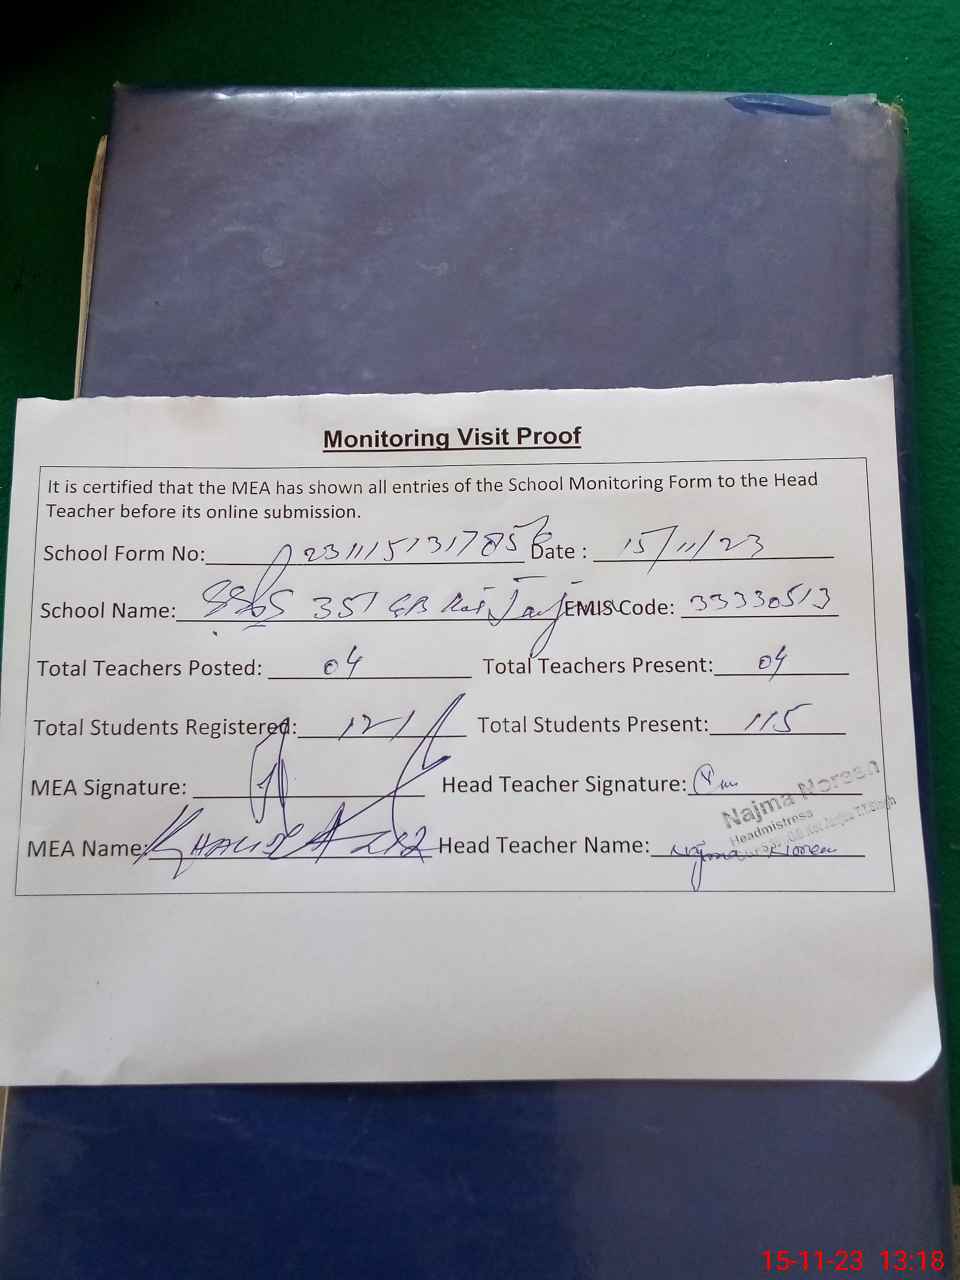 Monitoring Visit Proof
It is certified that the MEA has shown all entries of the School Monitoring Form to the Head
Teacher before its online submission.
School Form No: Date : 15/11/23
School Name: 351 GB EMIS Code: 33330513
Total Teachers Posted: 04 Total Teachers Present: 04
Total Students Registered: 121 Total Students Present: 115
MEA Signature: Head Teacher Signature:
Najma Noreen
Headmistress
MEA Name: KHALID AZIZ Head Teacher Name: Najma Noreen
15-11-23 13:18